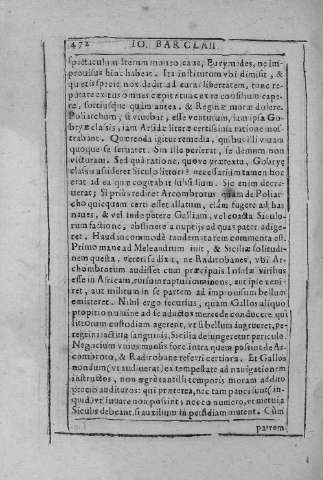 472 IO. BARCLAII
spectaculum iterum moueo. caue, Eurymedes, ne im-
prouisus hinc habeat. Ita institutum vbi dimisit, &
quietis specie nox dedit ad curas libertatem, tunc re-
putare exitus omnes cœpit
pere, fortiusque quàm antea. & Reginæ mora dolere.
Poliarchum, vt viuebat, esse venturum, iam ipsa Go-
bryæ classis, iam Artidæ literæ certissima ratione mos-
trabant. Quærenda igitur remedia, quibus illi viuam
quoque se seruaret. Sin ille perierat, se demum non
victuram. Sed quâ ratione, quove prætextu, Gobryæ
classis assideret Siculo littori? necessarium tamen hoc
erat ad ea quæ cogitabat subsidium. Sic enim decre-
uerat; Si prius rediret Arcombrotus quàm de Poliar-
cho quicquam certi esset allatum, clàm fugere ad has
naues, & vel inde petere Galliam, vel coacta Siculo-
rum factione, abstinere a nuptijs ad quas pater adige-
ret. Haud incommodè tandem tarem commenta est.
Primo mane ad Meleandrum init, & Siciliæ solitudi-
nem questa, vereri se dixit, ne Radirobanes, vbi Ar-
chombrotum audisset cum præcipuis Insulæ viribus
esse in Africam,
ret, aut militum in se partem ad improuisum bellum
emitteret. Nihil ergo securius, quam Gallos aliquo
propitio numine ad se aductos mercede conducere, qui
littorum custodiam agerent, vt si bellum ingrueret, pe-
regrini iactura sanguinis, Sicilia defungeretur periculo.
Negocium vnius mensis fore intra quem possint de Ar-
combroto, & Radirobane referri certiora. Et Gallos
nondum (vt audiuerat) ex tempestate ad nauigationem
instructos, non ægrè tantilli temporis moram addito
precio audituros: qui præterea, nec tam pauci sunt (in-
quid) vt iuuare non possint; nec eo numero, vt metui à
Siculis debeant, si auxilium in perfidiam mutent. Cùm
patrem